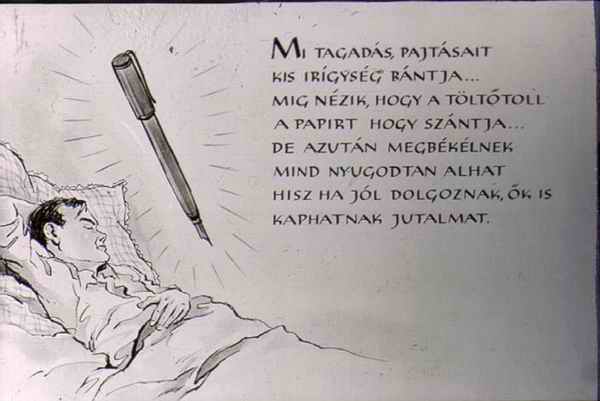 MI TAGADÁS, PAJTÁSAIT
KIS IRÍGYSÉG BÁNTJA...
MIG NÉZIK, HOGY A TÖLTŐTOLL
A PAPIRT HOGY SZÁNTJA...
DE AZUTÁN MEGBÉKÉLNEK
MIND NYUGODTAN ALHAT
HISZ HA JÓL DOLGOZNAK, ŐK IS
KAPHATNAK JUTALMAT.